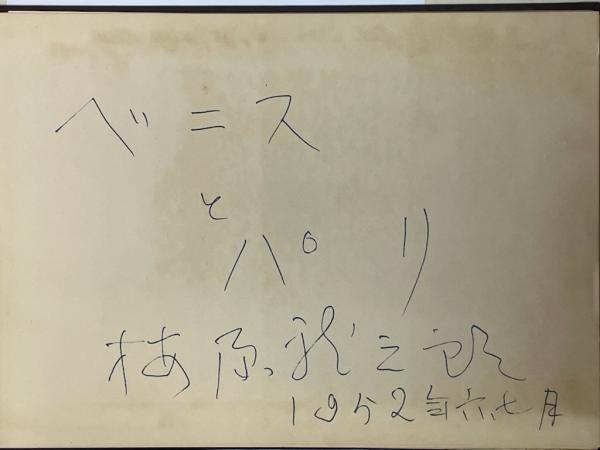 ベニス
と
パリ
梅原龍三郎
1952年六、七月